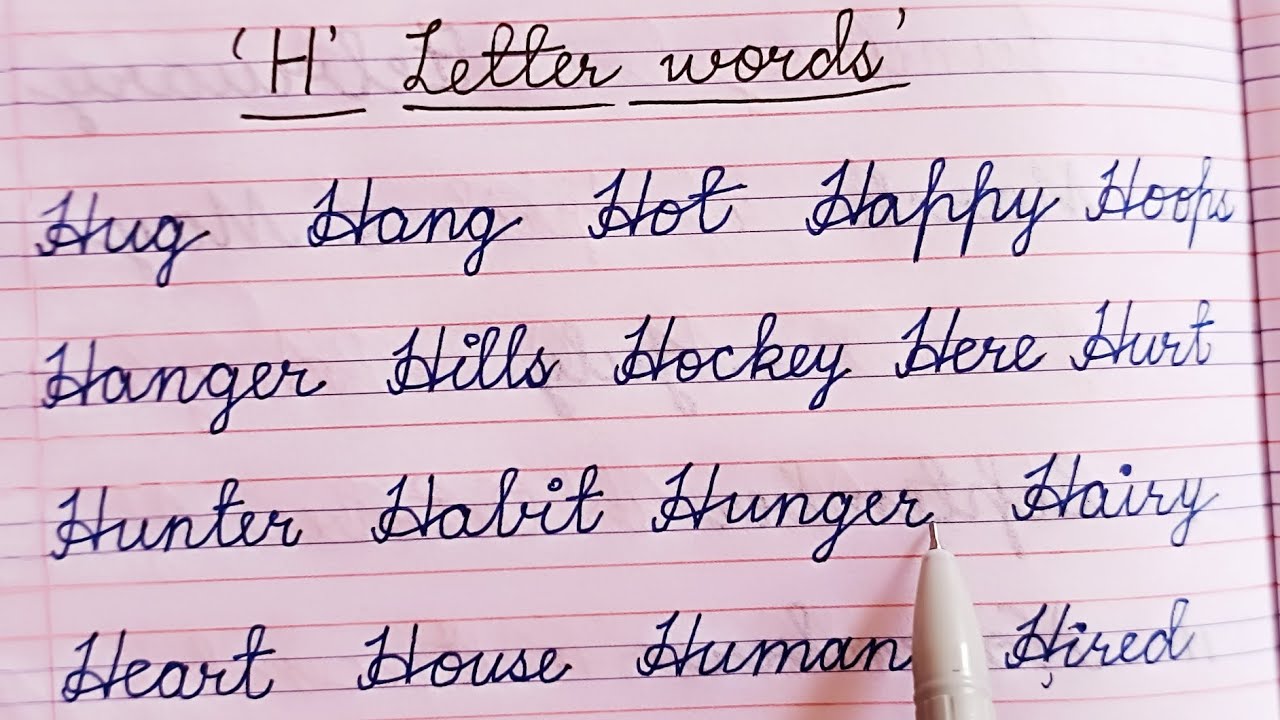 'H' Letter words'
Hug Hang Hot Happy Hoops
Hanger Hills Hockey Here Hurt
Hunter Habit Hunger Hairy
Heart House Human Hired